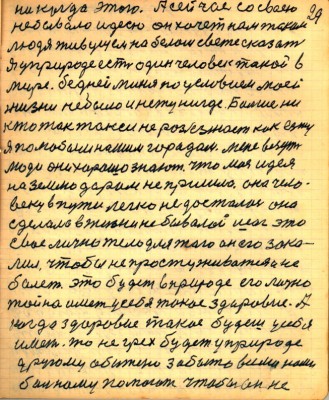 никогда этого. А сейчас со своею
небывало идеею он хочет нам таким
людя живущем на белом свете сказать
Я у природе есть один человек такой в
мире. Бедней миня по условиям моей
жизни небыло и нету нигде. Больше ни
кто так такси не розезжает как езжу
я по любыми нашим городам. Мене везут
люди они хорошо знают, что моя идея
на землю даром не пришла, она чело-
веку в пути легко не досталась она
сделала в жизни не бывалой шаг это
свое лично тело для того он его зака-
лил, чтобы не простуживатися и не
болеть. это будет в природе его лично
той на имет у себя такое здоровие. А
когда здоровие такое будеш у себя
имет. то не грех будет у природе
другому обижено забыто всеми нами
больному помогат чтобы он не